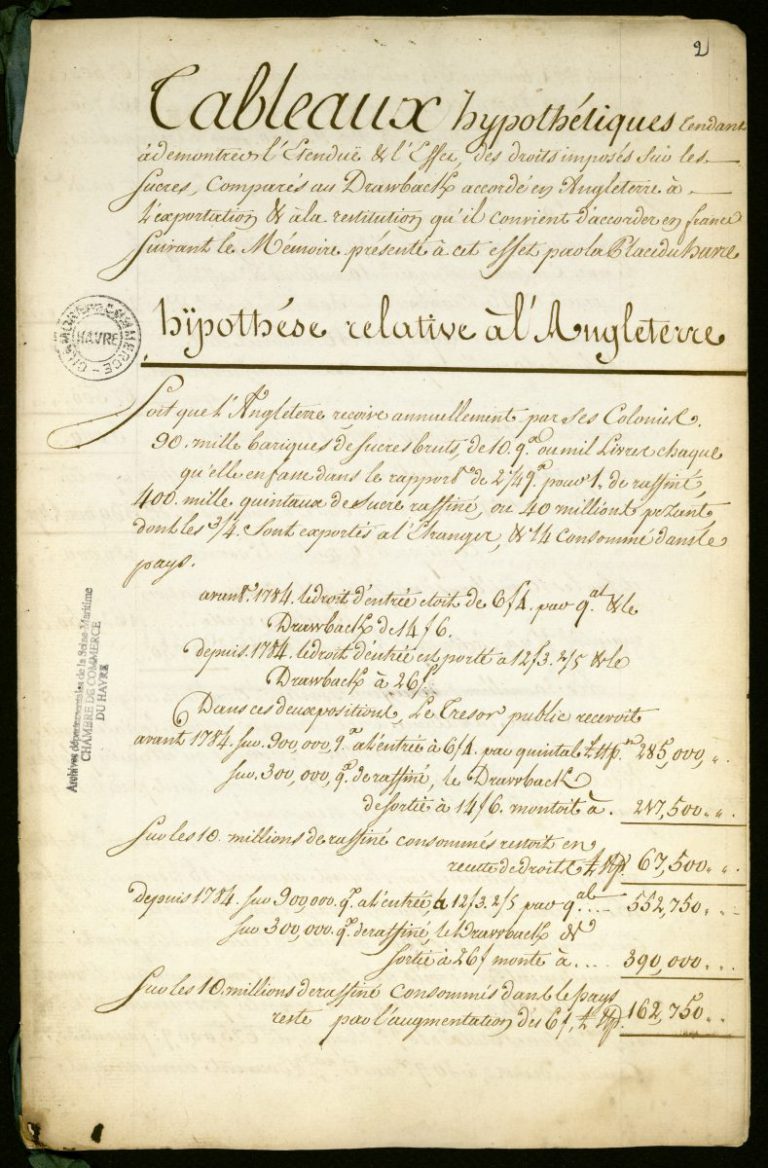 2
Tableaux hypothétiques tendant
à demontrer l'Etenduë & l'Effet, des droits imposés sur les
Sucres, Comparés au Drawback accordé en Angleterre à
L'exportation & à la restitution qu'il convient d'accorder en france
Suivant le Mémoire présenté à cet effet par la Place du havre
hÿpothése relative à l'Angleterre
CHAMBRE DE COMMERCE
HAVRE
Soit que l'Angleterre reçoive annuellement par ses Colonies
90. mille bariques de Sucres bruts, de 10. q.x ou mil Livres chaque
qu'elle en fasse dans le rapport de 2 1/4 q.x pour 1. de raffiné,
400. mille quintaux de Sucre raffiné, ou 40 millions pezant
dont les 3/4. Sont exportés a l'Etranger, & 1/4 consommé dans le
pays.
avant 1784. le droit d'entrée etoit de 6/4. par q.al & le
Drawback de 14/6.
depuis 1784. le droit d'entrée est porté a 12/3. 2/5 & le
Drawback à 26/
Dans ces deux positions, Le Tresor public recevoit
avant 1784. sur 900,000, q.x a l'entrée à 6/4. par quintal 285,000, „.
sur 300,000, q.x de raffiné, le Drawback
de sortie à 14/6. montoit à. 217,500. „.
Sur les 10. millions de raffiné consommés restoit en
recette de droits 67,500. „.
depuis 1784. sur 900,000. q.x a l'entrée, à 12/3. 2/5 par q.al .... 552,750. „.
sur 300,000. q.x de raffiné, le Drawback de
sortie à 26/ monte à .... 390,000...
Sur les 10. millions de raffiné consommés dans le pays
reste par l'augmentation des 6/, 162,750..
Archives départementales de la Seine-Maritime
CHAMBRE DE COMMERCE
DU HAVRE